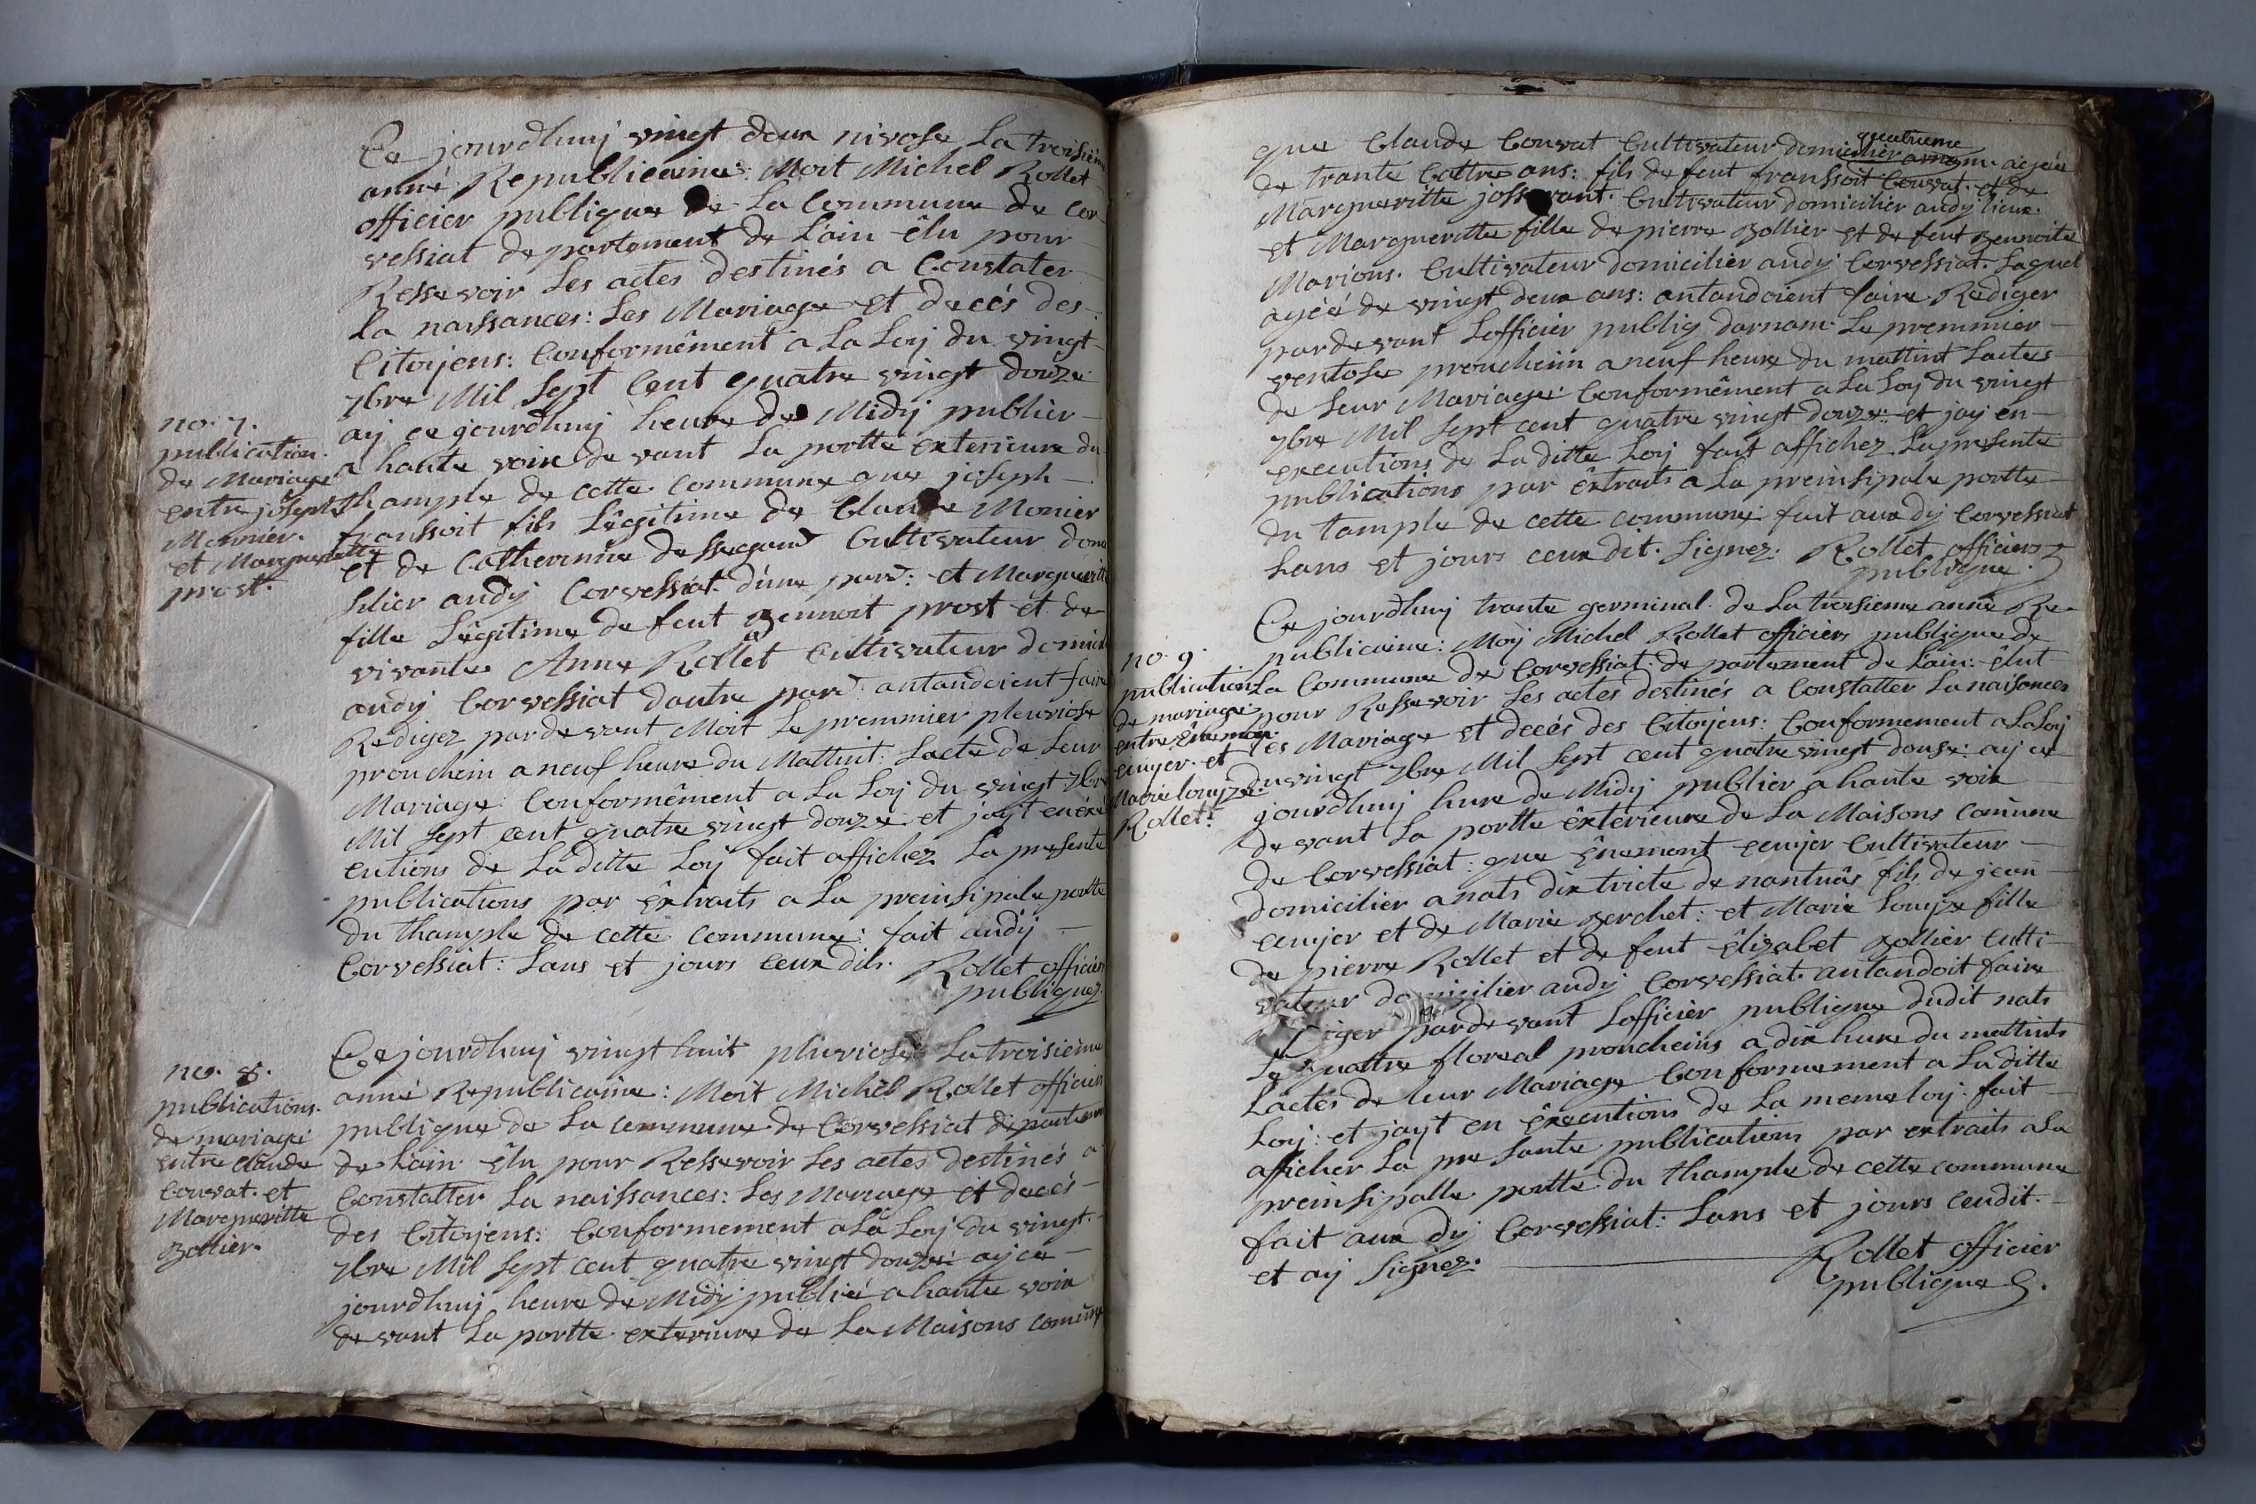 Ce jourdhuy vingt deux nivose La troisième
anné Republicaine: Moit Michel Rollet
officier publique de La Commune de Cor
vessiat departement de Lain êlu pour
Ressevoir Les actes destinés a Constater
La naissances: Les Mariage et decés des
Citoyens: Conformêment a La Loy du vingt
7bre Mil Sept Cent quatre vingt douze
ay ce jourdhuy heure de Midy publier
a haute voix de vant La portte exterieure du
thample de cette commune que joseph
franssoit fils Légitime de Claude Monier
et de Catherinne Dessegand Cultivateur domi
silier audy Corvessiat d'une pard: et Margueritte
fille Légitime de feut Bennoit prost et de
vivante Anne Rollet Cultivateur domici
audy Corvessiat dautre pard antandoient faire
Redigez pardevant Moit Le premmier pleuviose
prouchein a neuf heure du Mattint: Lacte de Leur
Mariage Conformêment a La Loy du vingt 7bre
Mil Sept cent quatre vingt douze et jayt enéxé
cutions de La ditte Loy fait affichez La presente
publications par êxtraits a La preinsipale portte
du thample de cette commune: fait audy
Corvessiat: Lans et jours ceux dits. Rollet officier
publique
no. 7.
publication
de Mariage
entre joseph
Monnier.
et Margueritte
prost.
Ce jourdhuy vingt huit pluviose La troisième
anné Republicaine: Moit Michel Rollet officier
publique de La commune de Corvessiat departemen
de Lain êlu pour Ressevoir Les actes destinés a
Constatter La naissances: Les Mariage et decés
des Citoyens: Conformement a La Loy du vingt
7bre Mil Sept cent quatre vingt douze: ay ce
jourdhuy heure de Midy publié a haute voix
de vant La portte exterieure de La Maisons comune
no. 8.
publications.
de mariage
entre claude
Couvat. et
Margueritte
Bollier.
quatrieme
que Claude Couvat Cultivateur domicilier arnom agée
de trante Cattre ans: fils de feut franssoit Couvat. et de
Margueritte josserant. Cultivateur domicilier audy lieux.
et Margueritte fille de pierre Bollier et de feut Bennoite
Marions. Cultivateur domicilier audy Corvessiat. Laquel
agéé de vingt deux ans: antandoient faire Rediger
pardevant Lofficier publiq darnom Le premmier
ventose prouchein a neuf heure du mattint Lactes
de Leur Mariage Conformêment a La Loy du vingt
7bre Mil Sept cent quatre vingt douze: et jay en
executions de La ditte Loy fait affichez La presente
publications par êxtraits a La preinsipale portte
du tample de cette commune: fait aux dy Corvessiat
Lans et jours ceux dit. Signez. Rollet officiers
publique.
Ce jourdhuy trante germinal de La troisieme anné Re-
publicaine: Moy Michel Rollet officiers publique de
La Commune de Corvessiat. departement de Lain: êlut
pour Ressevoir Les actes destinés a Constatter La naisances
Les Mariage et decés des Citoyens: Conformement a La Loy
du vingt 7bre Mil Sept cent quatre vingt douse: ay ce
jourdhuy hure de Midy publier a haute voix
de vant La portte êxterieure de La Maisons comune
de Corvessiat: que Énemont cuyer Cultivateur
domicilier anats dixtricte de nantuâs fils de jean
cuyer et de Marie Berchet: et Marie Louyze fille
de pierre Rollet et de feut êlizabet Bollier Culti-
vateur domicilier audy Corvessiat. antandoit faire
Rediger pardevant Lofficier publique dudit nats
Le quattre floreal proucheins a dix hure du mattints
Lactes de leur Mariage Conformement a La ditte
Loy: et jayt en êxecutions de La meme loy. fait
afficher La pre sante publications par extraits a La
preinsipalle portte du thample de cette commune
fait aux dy Corvessiat: Lans et jours ceudit.
et ay Signez. Rollet officier
publique
no. 9.
publication
de mariage
entre Enemon
cuyer. et
Marie Louyze
Rollet.